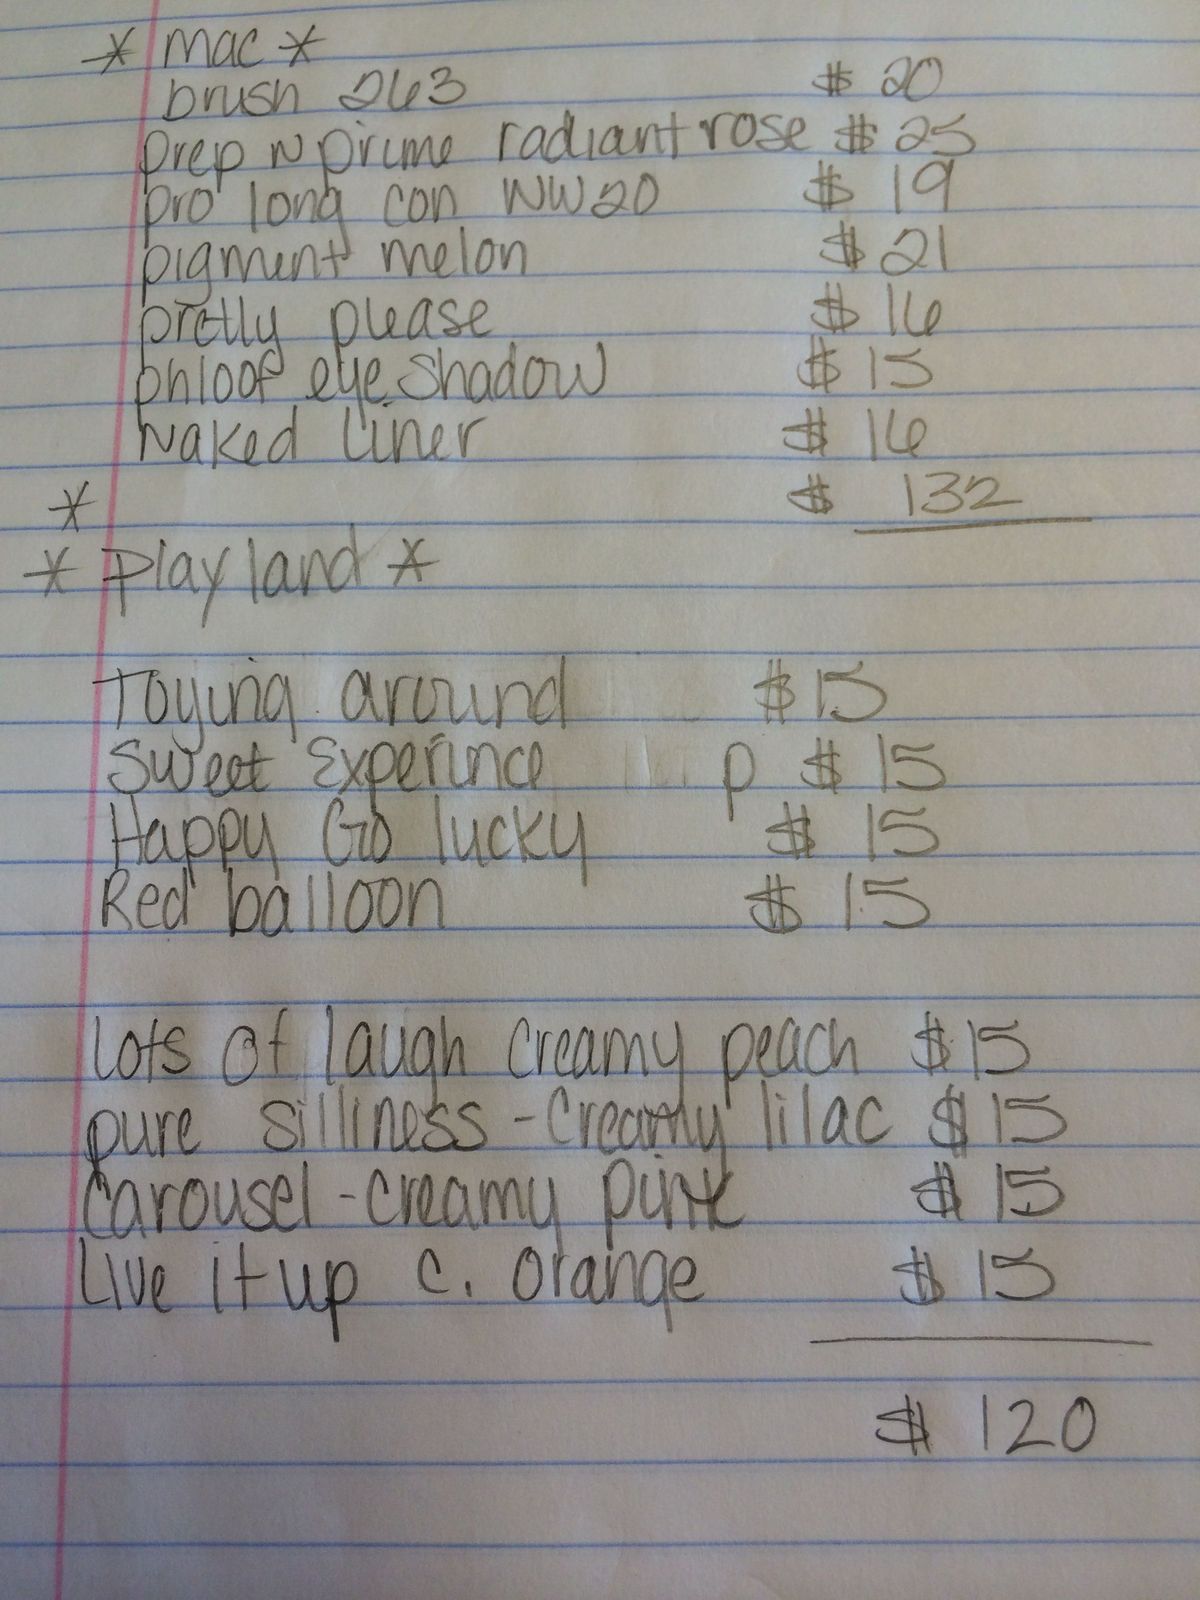 * mac *
brush 263 $ 20
prep n prime radiant rose $ 25
pro long con NW20 $ 19
pigment melon $ 21
pretty please $ 16
phloof eye shadow $ 15
Naked Liner $ 16
* $ 132
* Play land *
Toying around $ 15
Sweet Experince p $ 15
Happy Go lucky $ 15
Red balloon $ 15
Lots of laugh creamy peach $ 15
pure silliness - creamy lilac $ 15
Carousel - creamy pink $ 15
Live it up c. orange $ 15
$ 120